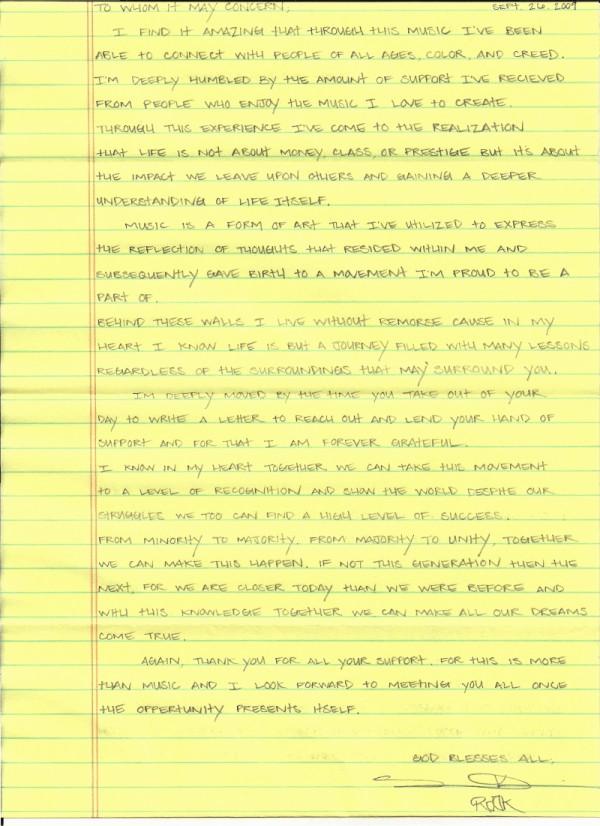 TO WHOM IT MAY CONCERN, SEPT. 26. 2009
I FIND IT AMAZING THAT THROUGH THIS MUSIC I'VE BEEN
ABLE TO CONNECT WITH PEOPLE OF ALL AGES, COLOR, AND CREED.
I'M DEEPLY HUMBLED BY THE AMOUNT OF SUPPORT I'VE RECIEVED
FROM PEOPLE WHO ENJOY THE MUSIC I LOVE TO CREATE.
THROUGH THIS EXPERIENCE I'VE COME TO THE REALIZATION
THAT LIFE IS NOT ABOUT MONEY, CLASS, OR PRESTIGE BUT IT'S ABOUT
THE IMPACT WE LEAVE UPON OTHERS AND GAINING A DEEPER
UNDERSTANDING OF LIFE ITSELF.
MUSIC IS A FORM OF ART THAT I'VE UTILIZED TO EXPRESS
THE REFLECTION OF THOUGHTS THAT RESIDED WITHIN ME AND
SUBSEQUENTLY GAVE BIRTH TO A MOVEMENT I'M PROUD TO BE A
PART OF.
BEHIND THESE WALLS I LIVE WITHOUT REMORSE CAUSE IN MY
HEART I KNOW LIFE IS BUT A JOURNEY FILLED WITH MANY LESSONS
REGARDLESS OF THE SURROUNDINGS THAT MAY SURROUND YOU.
I'M DEEPLY MOVED BY THE TIME YOU TAKE OUT OF YOUR
DAY TO WRITE A LETTER TO REACH OUT AND LEND YOUR HAND OF
SUPPORT AND FOR THAT I AM FOREVER GRATEFUL.
I KNOW IN MY HEART TOGETHER WE CAN TAKE THIS MOVEMENT
TO A LEVEL OF RECOGNITION AND SHOW THE WORLD DESPITE OUR
STRUGGLES WE TOO CAN FIND A HIGH LEVEL OF SUCCESS.
FROM MINORITY TO MAJORITY. FROM MAJORITY TO UNITY, TOGETHER
WE CAN MAKE THIS HAPPEN. IF NOT THIS GENERATION THEN THE
NEXT, FOR WE ARE CLOSER TODAY THAN WE WERE BEFORE AND
WITH THIS KNOWLEDGE TOGETHER WE CAN MAKE ALL OUR DREAMS
COME TRUE.
AGAIN, THANK YOU FOR ALL YOUR SUPPORT. FOR THIS IS MORE
THAN MUSIC AND I LOOK FORWARD TO MEETING YOU ALL ONCE
THE OPPORTUNITY PRESENTS ITSELF.
GOD BLESSES ALL,